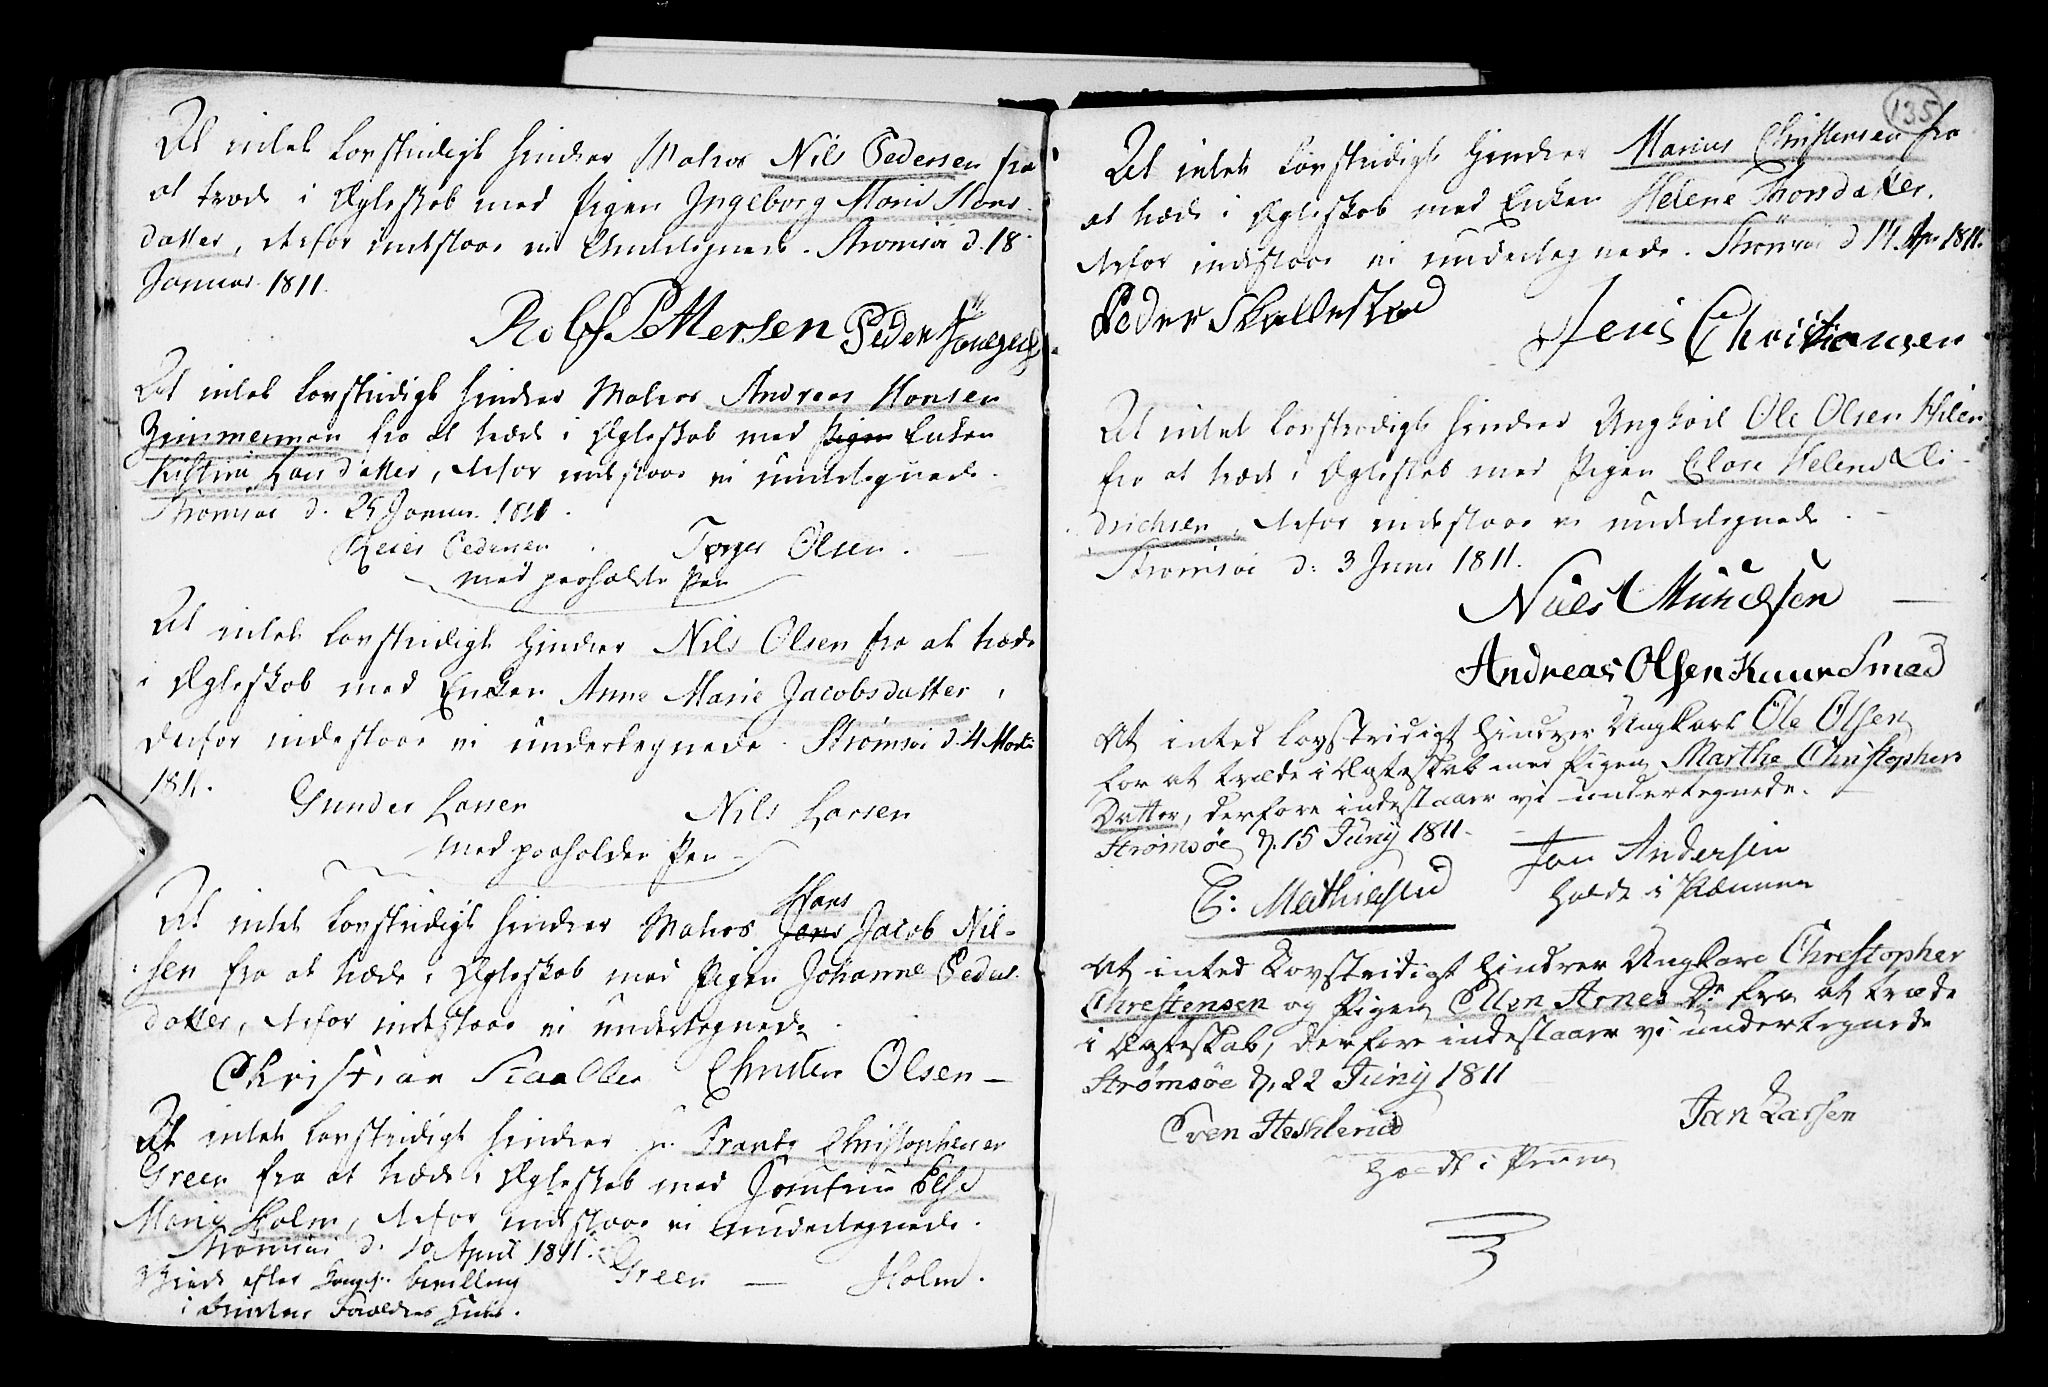 At intet Lovstridigt hindrer Matros Nils Pedersen fra
at træde i Ægteskab med Pigen Ingeborg Marie Hans
datter, derfor indestaae vi Undertegnede. Strømsøe d. 18
Januar 1811.
Rolf Pettersen Peder
At intet Lovstridigt hindrer Matros Andreas Hansen
Zimmerman fra at træde i Ægteskab med Pigen Enken
Kistine Larsdatter, derfor indestaae vi undertegnede
Strømsøe d. 25 Januar 1811.
Reier Pedersen Torger Olsen.
med paaholden Pen
At intet Lovstridigt hindrer Nils Olsen fra at træde
i Ægteskab med Enken Anne Marie Jacobsdatter,
derfor indestaae vi undertegnede. Strømsøe d. 4 Marti
1811.
Gunder Larsen Nils Larsen
med paaholden Pen
At intet Lovstridigt hindrer Matros Jens Hans Jacob Nil-
sen fra at træde i Ægteskab med Pigen Johanne Peders
datter, derfor indestaae vi undertegnede
Christian Christen Olsen
At intet Lovstridigt hindrer Hr. Frantz Christophersen
Green fra at træde i Ægteskab med Jomfrue Else
Marie Holm, derfor indestaae vi undertegnede.
Strømsøe d. 10 April 1811.
Green Holm.
Viede efter Kongel. bevilling
i Brudens Forældres Huus.
135
At intet Lovstridigt hindrer Marius Christensen fra
at træde i Ægteskab med Enken Helene Thorsdatter.
derfor indestaae vi undertegnede. Strømsøe d 14 Apr 1811.
Peder Skallestad
Jens Christiansen
At intet Lovstridigt hindrer Ungkarl Ole Olsen Hilen
fra at træde i Ægteskab med Pigen Clare Helene Di-
drichsen, derfor indestaae vi undertegnede.
Strømsøe d: 3 Juni 1811.
Niels Mundsen
Andreas Olsen Knur Smed
At inted Lovstridigt hindrer Ungkarl Ole Olsen
for at træde i Ægteskab med Pigen Marthe Christophers
Datter, derfore indestaaer vi undertegnede.
Strømsøe d. 15 Juny 1811.
E: Mathiesen Jan Andersen
holdt i Pennen
At inted Lovstridigt hindrer Ungkarl Chrestopher
Chrestensen og Pigen Ellen Arnes Dr fra at træde
i Ægteskab, derfore indestaaer vi undertegnede
Strømsøe d. 22 Juny 1811
Even Jan Larsen
holdt i Pennen